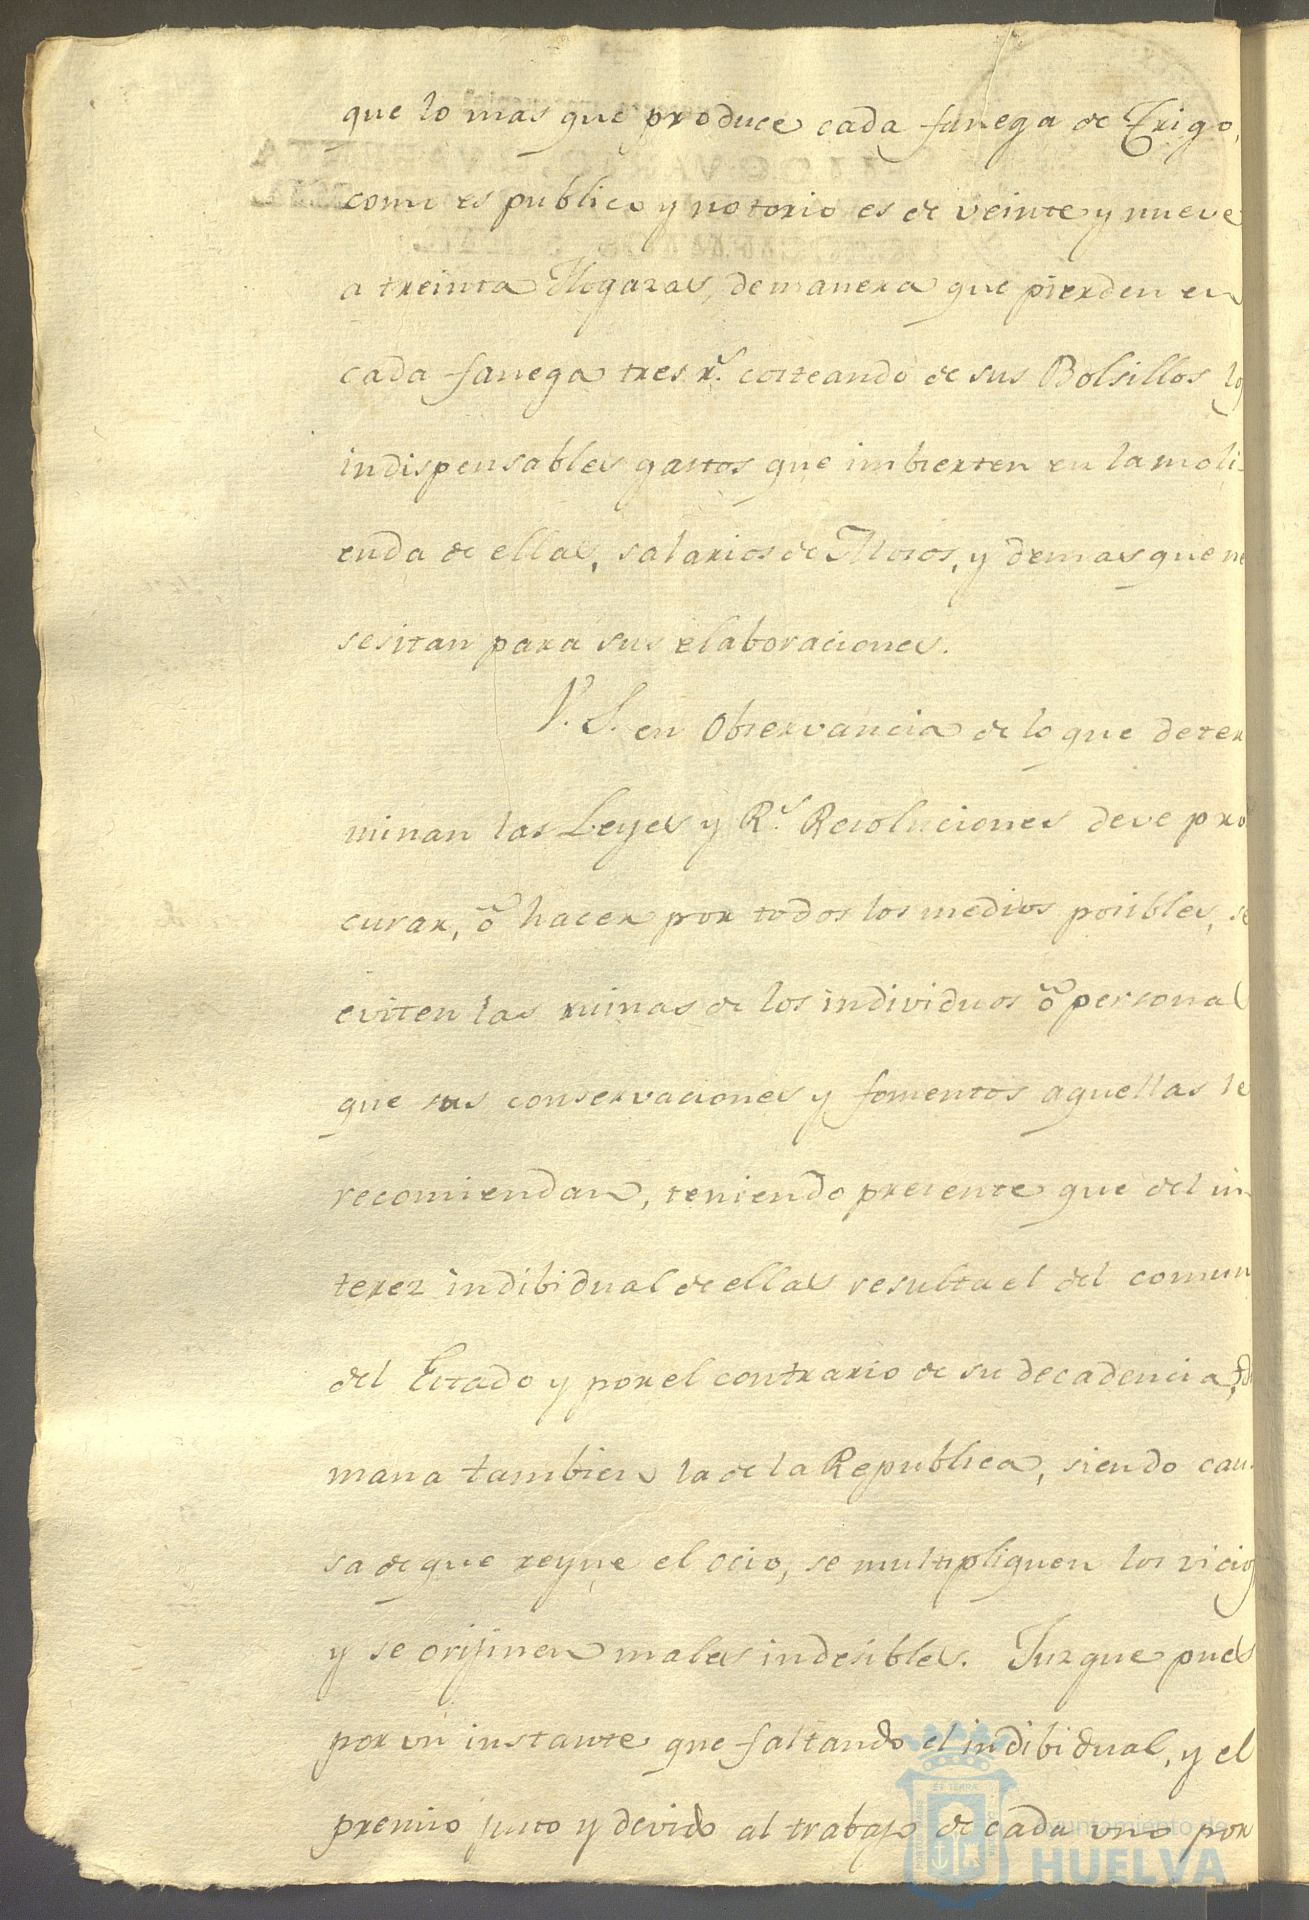 que lo mas que produce cada fanega de Trigo,
como es publico y notorio es de veinte y nueve
a treinta Hogazas, demanera que pierden en
cada fanega tres rs. costeando de sus Bolsillos los
indispensables gastos que imbierten en la moli
enda de ellas, salarios de Mosos, y demas que ne
sesitan para sus elaboraciones.
V. S. en Observancia de lo que deter
minan las Leyes y Rs. Resoluciones deve pro
curar, ó hacer por todos los medios posibles, se
eviten las ruinas de los individuos ó personas
que sus conservaciones y fomentos aquellas le
recomiendan, teniendo presente que del in
terez indibidual de ellas resulta el del comun
del Estado y por el contrario de su decadencia,
mana tambien la de la Republica, siendo cau
sa de que reyne el Ocio, se multipliquen los vicios
y se orijinen males indesibles. Jusgue pues
por un instante que faltando el indibidual, y el
premio justo y devido al trabajo de cada uno por
Ayuntamiento de
HUELVA